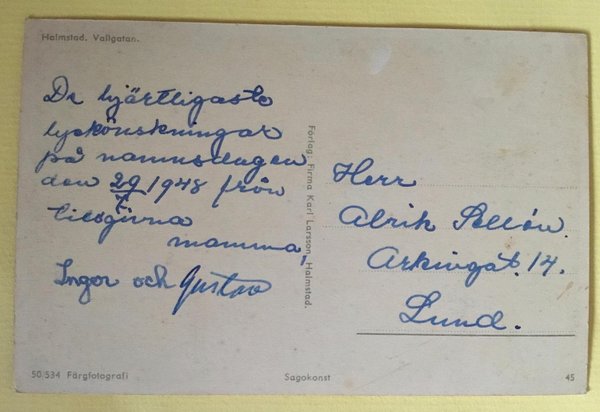 Halmstad. Vallgatan.
De hjärtligaste
lyckönskningar
på namnsdagen
den 29/7 1948 från
tillgivna
mamma,
Inger och Gustav
Förlag: Firma Karl Larsson, Halmstad.
Herr
Alrik
14.
Lund.
50/534 Färgfotografi
Sagokonst
45